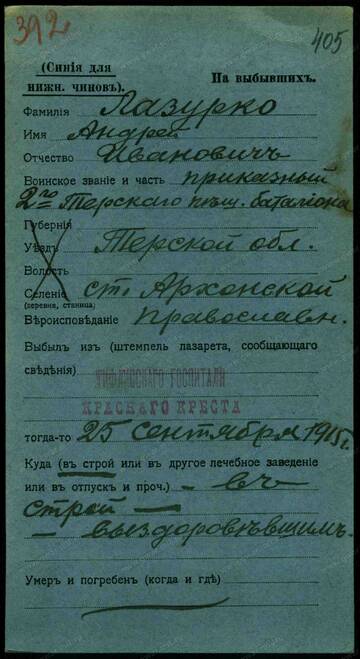 392
405
(Синія для
нижн. чиновъ).
На выбывшихъ.
Фамилія Лазурко
Имя Андрей
Отчество Ивановичъ
Воинское званіе и часть приказный
2го Терскаго пѣш. баталіона
Губернія
Уѣздъ Терской обл.
Волость
Селеніе ст. Архонской
(деревня, станица)
Вѣроисповѣданіе православн.
Выбылъ изъ (штемпель лазарета, сообщающаго
свѣдѣнія)
ТИФЛИССКАГО ГОСПИТАЛЯ
КРАСНАГО КРЕСТА
тогда-то 25 сентября 1915 г.
Куда (въ строй или въ другое лечебное заведеніе
или въ отпускъ и проч.) – въ
строй –
– выздоровѣвшимъ.
Умеръ и погребенъ (когда и гдѣ)